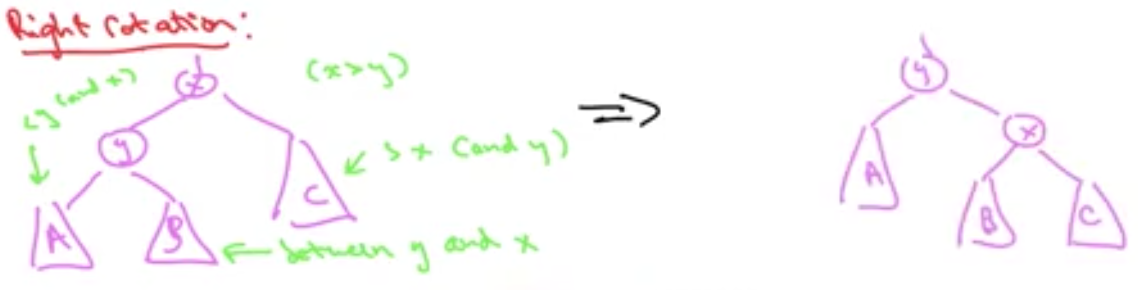 Right rotation:
<y (and x)
x
(x>y)
y
> x (and y)
A
B
C
between y and x
⇒
y
x
A
B
C